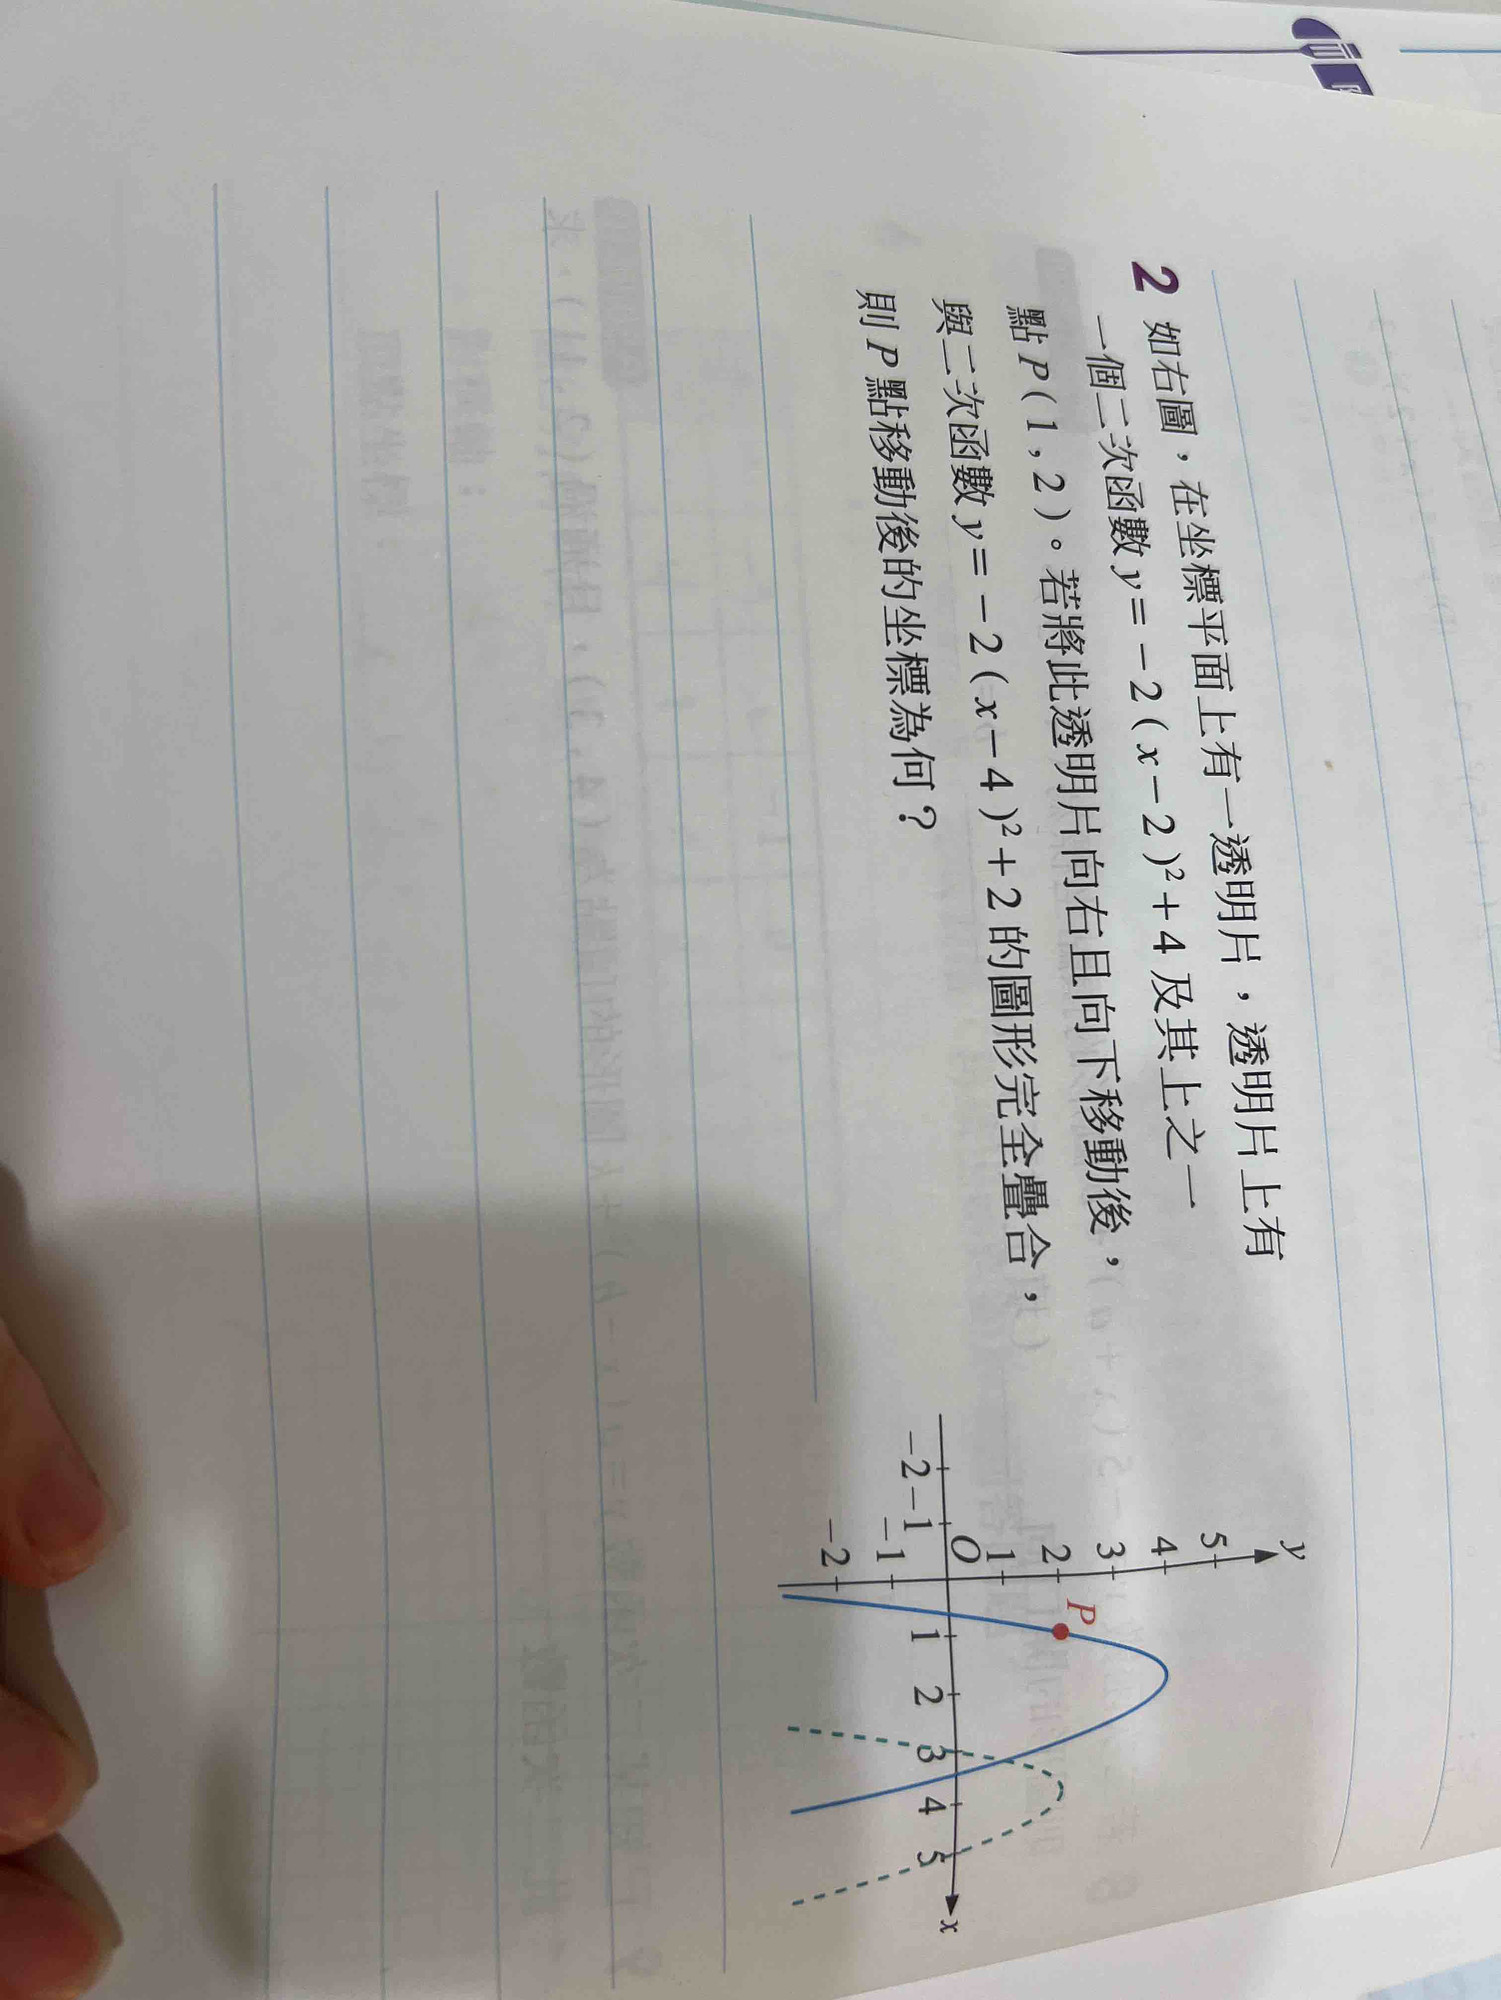 2 如右圖，在坐標平面上有一透明片，透明片上有
一個二次函數 y＝－2(x－2)²＋4 及其上之一
點 P(1,2)。若將此透明片向右且向下移動後，
與二次函數 y＝－2(x－4)²＋2 的圖形完全疊合，
則 P 點移動後的坐標為何？
y
5
4
3
2
P
1
O
－2 －1 1 2 3 4 5 x
－1
－2